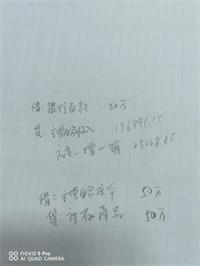 借：银行存款 20万
贷：主营收入 176991.15
应交-增-销 23008.85
借：主营成本 50万
贷：库存商品 50万
nova 9 Pro
AI QUAD CAMERA